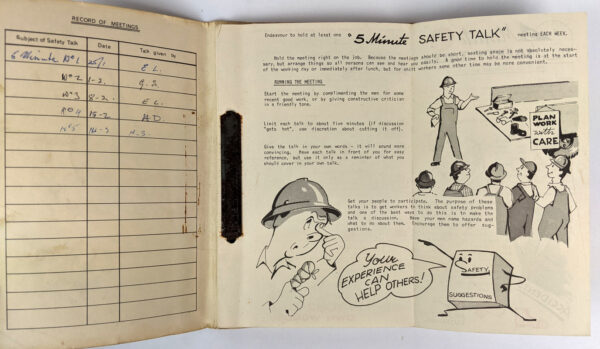 RECORD OF MEETINGS
Subject of Safety Talk Date Talk given by
5 Minute Nº1 25/1 E.L.
Nº2 1-2.
Nº3 8-2. E.L.
Nº4 15-2 H.D.
Nº5 H.S.
Endeavour to hold at least one "5 Minute SAFETY TALK" meeting EACH WEEK.
Hold the meeting right on the job. Because the meetings should be short, seating space is not absolutely neces-
sary, but arrange things so all persons can see and hear you easily. A good time to hold the meeting is at the start
of the working day or immediately after lunch, but for shift workers some other time may be more convenient.
RUNNING THE MEETING
Start the meeting by complimenting the men for some
recent good work, or by giving constructive criticism
in a friendly tone.
Limit each talk to about five minutes (if discussion
"gets hot", use discretion about cutting it off).
Give the talk in your own words - it will sound more
convincing. Have each talk in front of you for easy
reference, but use it only as a reminder of what you
should cover in your own talk.
PLAN
WORK
with
CARE
Get your people to participate. The purpose of these
talks is to get workers to think about safety problems
and one of the best ways to do this is to make the
talk a discussion. Have your men name hazards and
what to do about them. Encourage them to offer sug-
gestions.
Your
EXPERIENCE
CAN
HELP OTHERS!
SAFETY
SUGGESTIONS